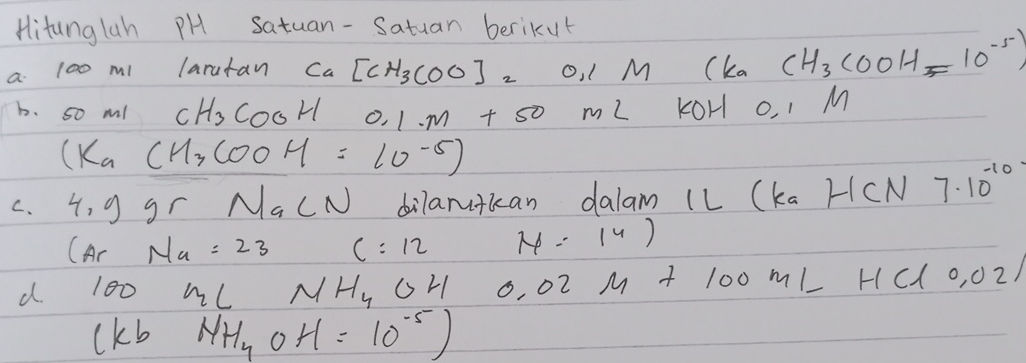 Hitunglah PH Satuan - Satuan berikut
a. 100 ml larutan Ca [CH3COO]2 0,1 M (ka CH3COOH = 10⁻⁵)
b. 50 ml CH3COOH 0,1 M + 50 mL KOH 0,1 M
(Ka CH3COOH = 10⁻⁵)
c. 4,9 gr NaCN dilarutkan dalam 1L (ka HCN 7.10⁻¹⁰
(Ar Na = 23 C = 12 N = 14)
d 100 mL NH4OH 0,02 M + 100 mL HCl 0,02
(kb NH4OH = 10⁻⁵)